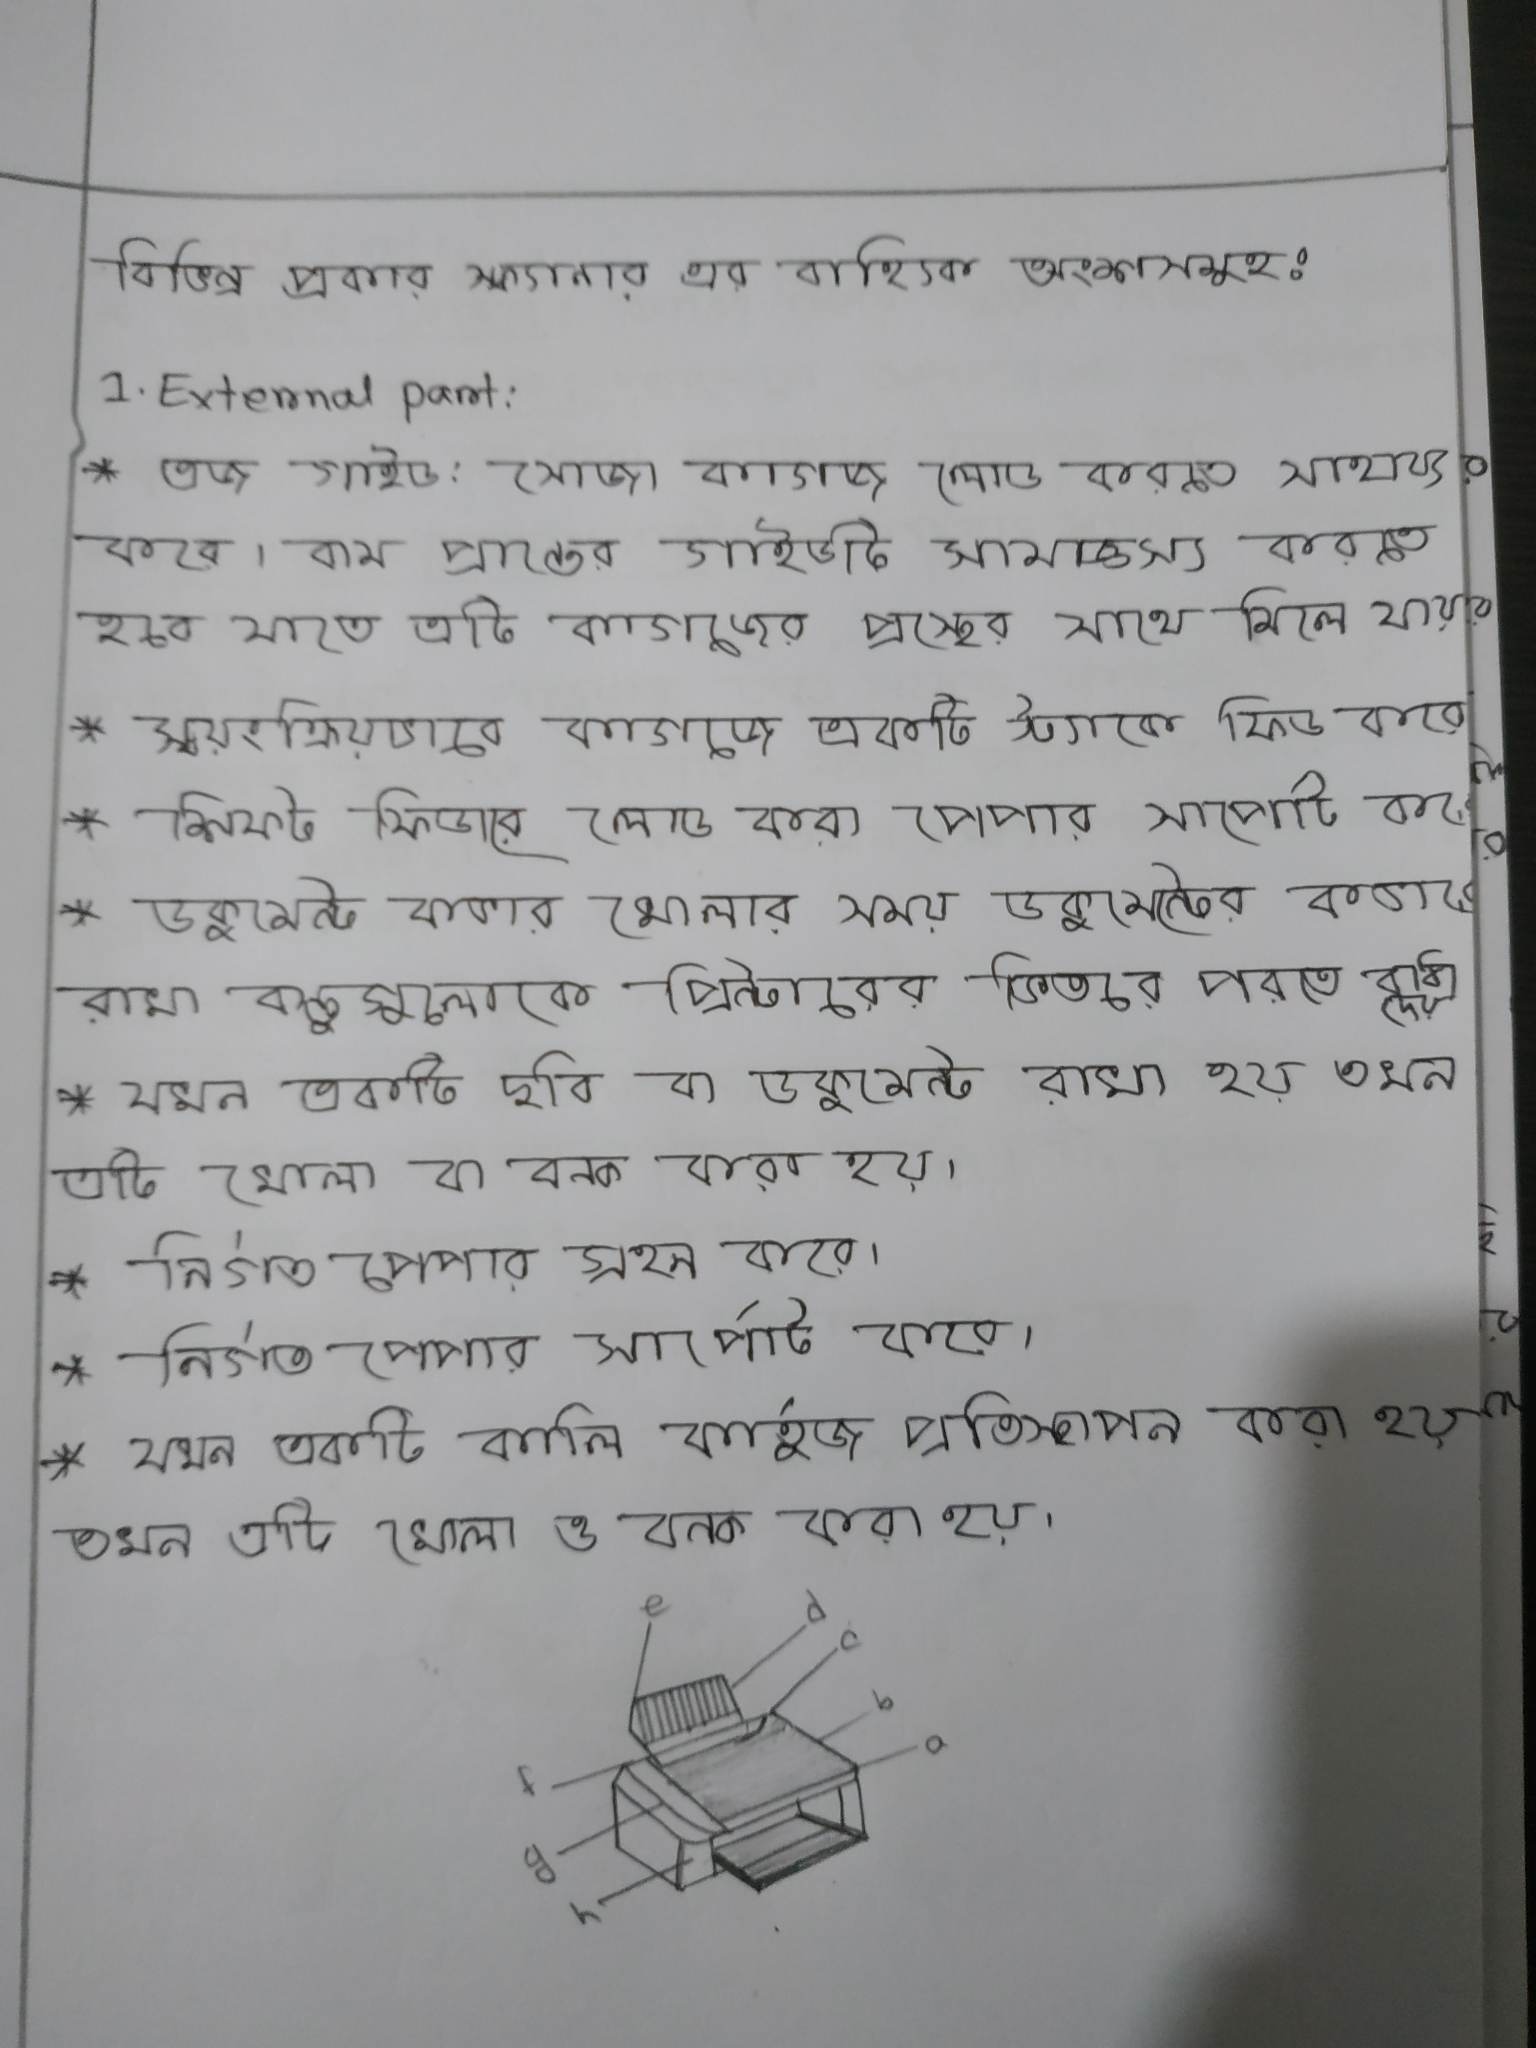 বিভিন্ন প্রকার স্ক্যানার এর বাহ্যিক অংশসমূহঃ
1. External part:
* এজ গাইড: সোজা কাগজ লোড করতে সাহায্য
করে। বাম প্রান্তের গাইডটি সামাঞ্জস্য করতে
হবে যাতে এটি কাগজের প্রস্থের সাথে মিলে যায়
* স্বয়ংক্রিয়ভাবে কাগজে একটি স্ট্যাকে ফিড করে
* শিফট ফিডারে লোড করা পেপার সাপোর্টি করে
* ডকুমেন্ট কাভার খোলার সময় ডকুমেন্টের কাভারে
রাখা বস্তুগুলোকে প্রিন্টারের ভিতরে পরতে
* যখন একটি ছবি বা ডকুমেন্ট রাখা হয় তখন
এটি খোলা বা বন্ধ করা হয়।
* নির্গত পেপার গ্রহন করে।
* নির্গত পেপার সার্পোট করে।
* যখন একটি কালি কার্তুজ প্রতিস্থাপন করা হয়
তখন এটি খোলা ও বন্ধ করা হয়।
e
d
c
b
a
f
g
h